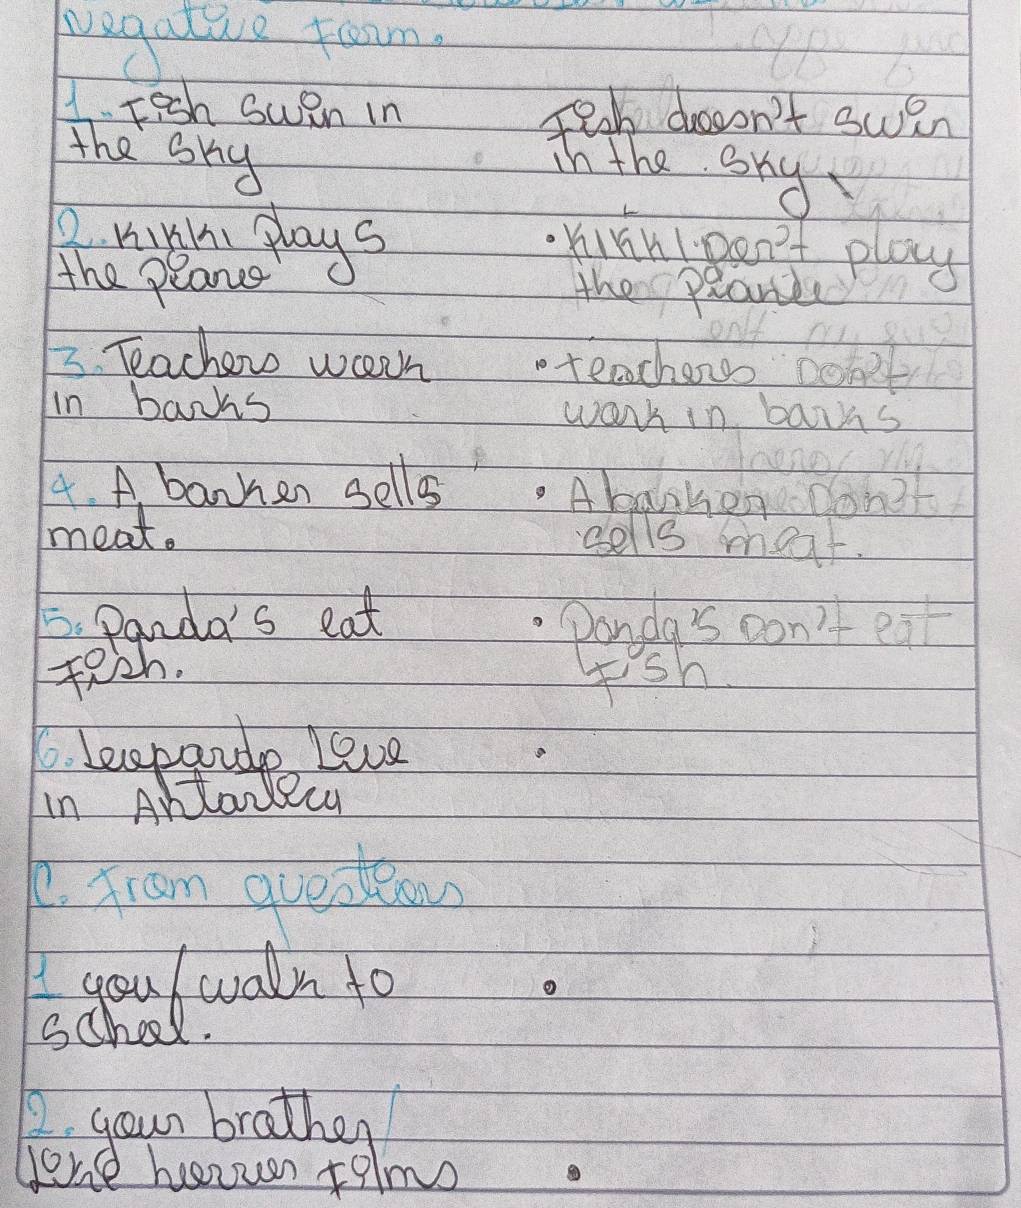 Negative form.
1. Fish swin in
the sky
Fish doesn't swin
in the sky
2. Kikki plays
the piano
• Kikki Don't play
the piano
3. Teachers work
in banks
• teachers Don't
work in banks
4. A banker sells
meat.
• A banker Don't
sells meat.
5. Panda's eat
fish.
• Panda's Don't eat
fish.
6. Leopards Live
in
•
C. From questions
1 you / walk to
school.
•
2. your brother /
like horror films
•